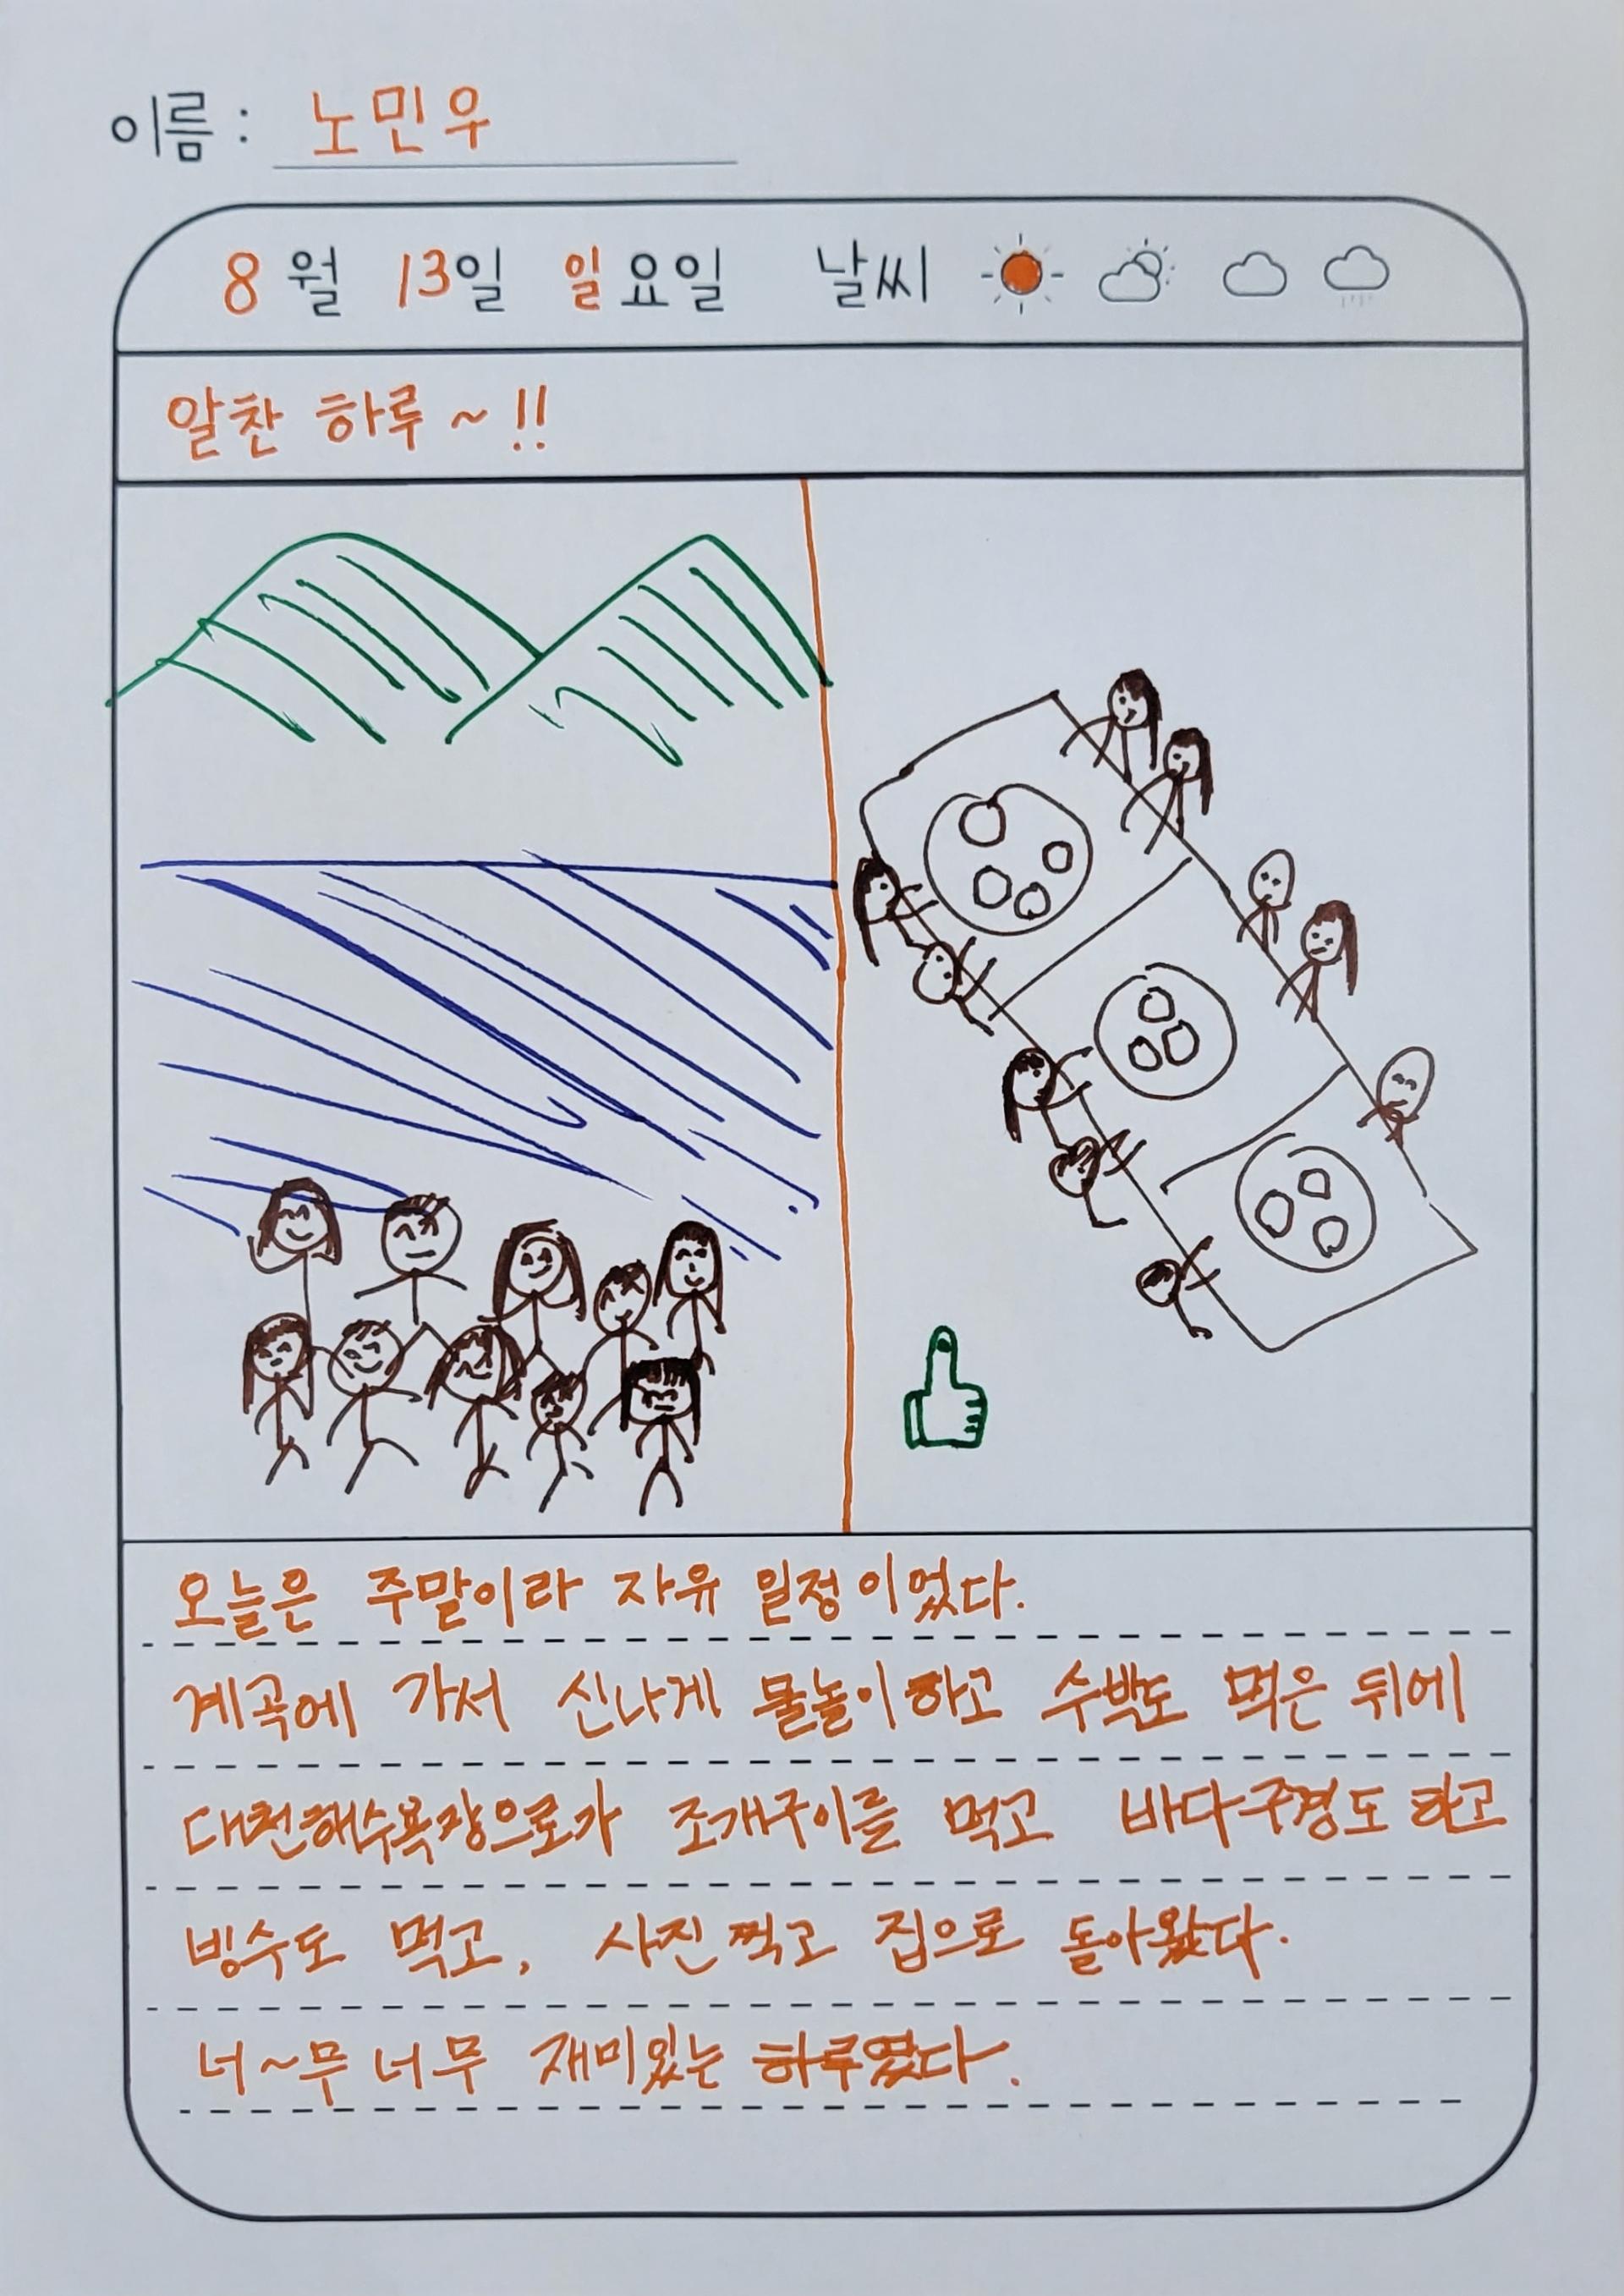 이름 : 노민우
8월 13일 일요일 날씨
알찬 하루~!!
오늘은 주말이라 자유 일정이었다.
계곡에 가서 신나게 물놀이하고 수박도 먹은 뒤에
대천해수욕장으로가 조개구이를 먹고 바다구경도 하고
빙수도 먹고, 사진찍고 집으로 돌아왔다.
너~무 너무 재미있는 하루였다.